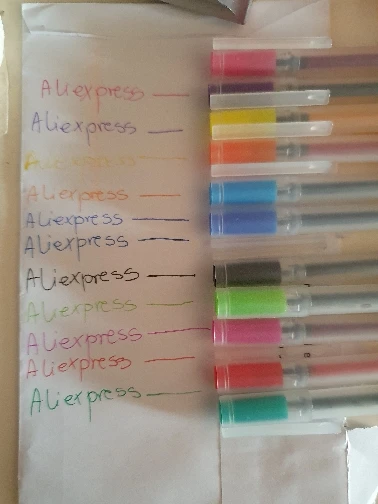 Aliexpress
Aliexpress
Aliexpress
Aliexpress
Aliexpress
Aliexpress
Aliexpress
Aliexpress
Aliexpress
Aliexpress
Aliexpress